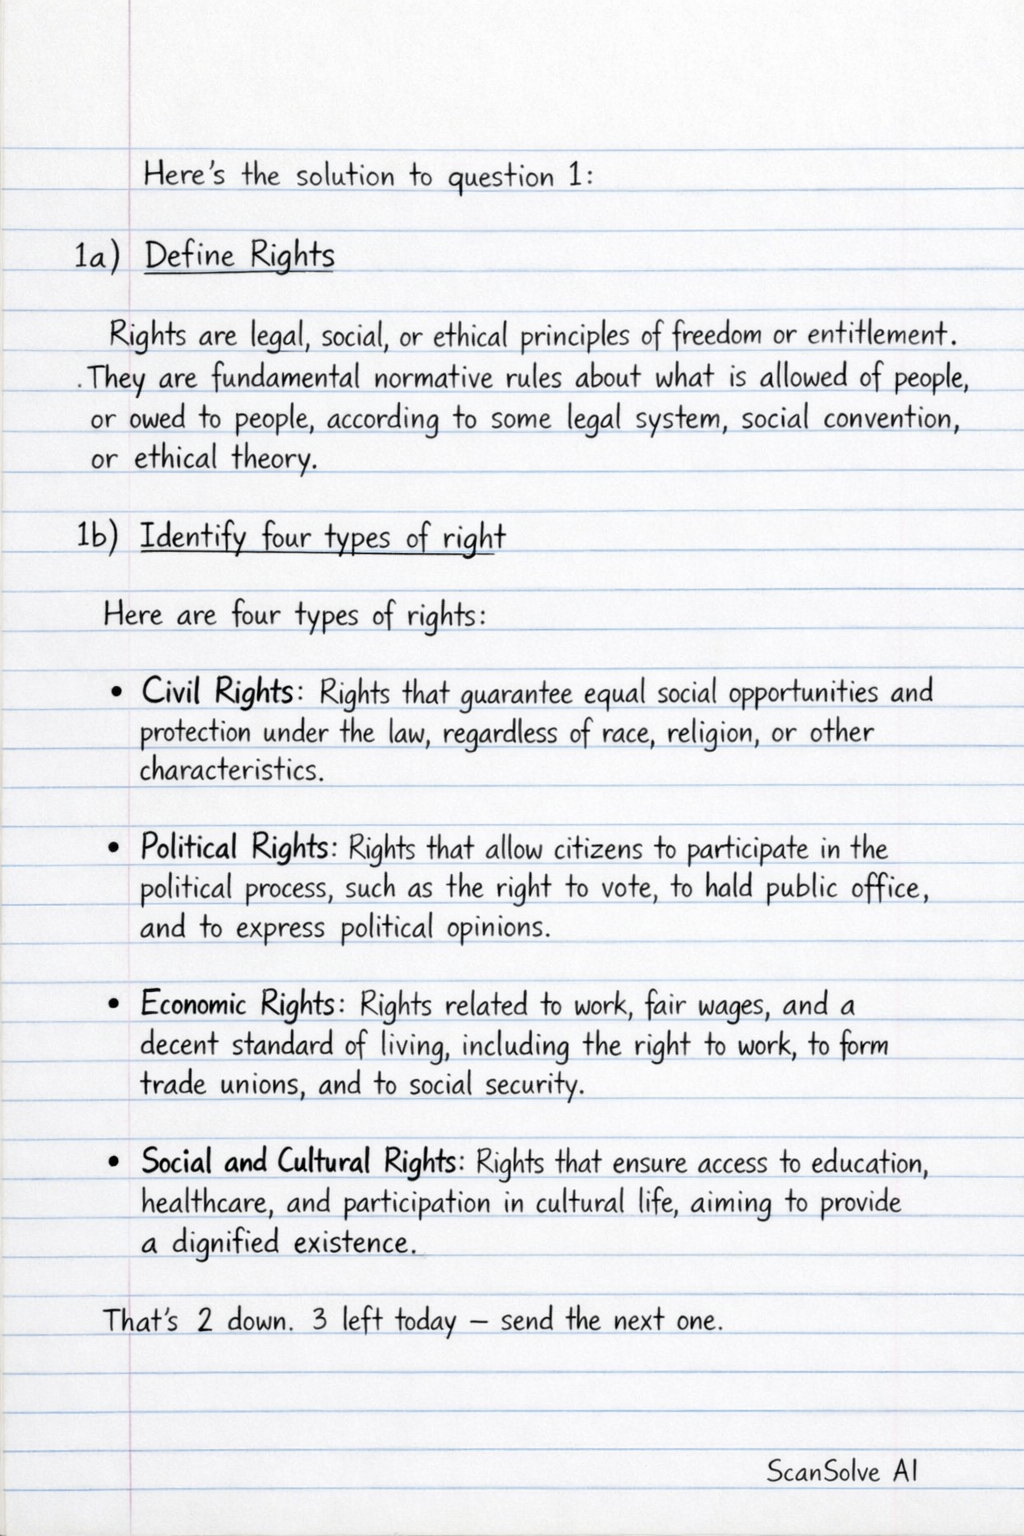 Here's the solution to question 1:
1a) Define Rights
Rights are legal, social, or ethical principles of freedom or entitlement.
. They are fundamental normative rules about what is allowed of people,
or owed to people, according to some legal system, social convention,
or ethical theory.
1b) Identify four types of right
Here are four types of rights:
• Civil Rights: Rights that guarantee equal social opportunities and
protection under the law, regardless of race, religion, or other
characteristics.
• Political Rights: Rights that allow citizens to participate in the
political process, such as the right to vote, to hald public office,
and to express political opinions.
• Economic Rights: Rights related to work, fair wages, and a
decent standard of living, including the right to work, to form
trade unions, and to social security.
• Social and Cultural Rights: Rights that ensure access to education,
healthcare, and participation in cultural life, aiming to provide
a dignified existence.
That's 2 down. 3 left today — send the next one.
ScanSolve AI